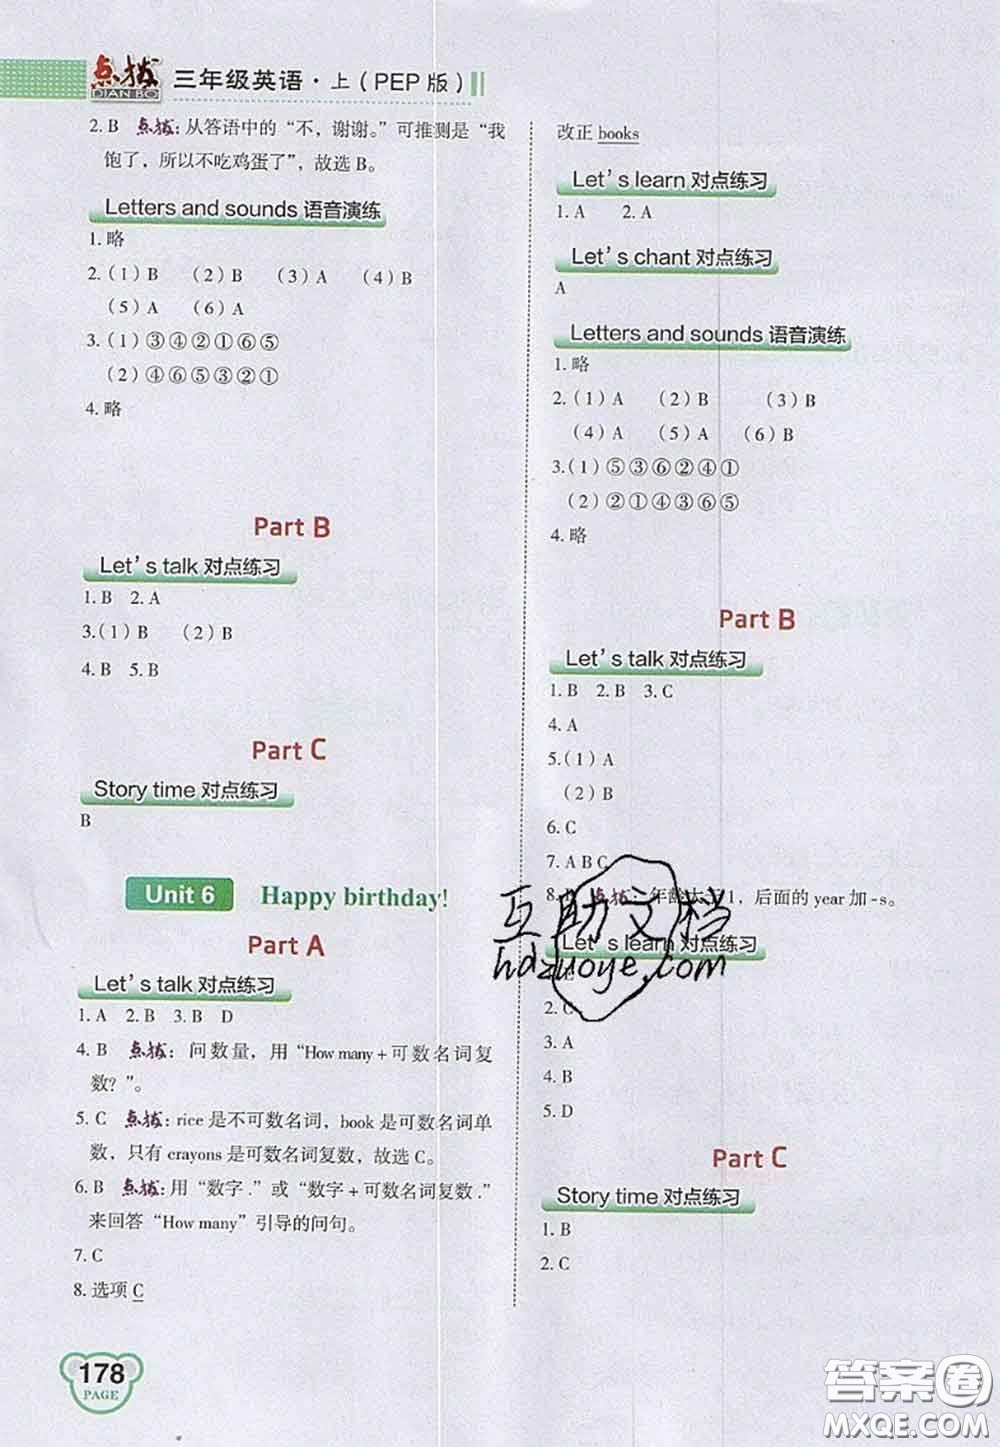 点拨 三年级英语·上（PEP版）
DIAN BO
2. B 点拨：从答语中的“不，谢谢。”可推测是“我
饱了，所以不吃鸡蛋了”，故选 B。
Letters and sounds 语音演练
1. 略
2.（1）B （2）B （3）A （4）B
（5）A （6）A
3.（1）③④②①⑥⑤
（2）④⑥⑤③②①
4. 略
Part B
Let's talk 对点练习
1. B 2. A
3.（1）B （2）B
4. B 5. B
Part C
Story time 对点练习
B
Unit 6 Happy birthday!
Part A
Let's talk 对点练习
1. A 2. B 3. B D
4. B 点拨：问数量，用“How many + 可数名词复
数？”。
5. C 点拨：rice 是不可数名词，book 是可数名词单
数，只有 crayons 是可数名词复数，故选 C。
6. B 点拨：用“数字.”或“数字 + 可数名词复数.”
来回答“How many”引导的问句。
7. C
8. 选项 C
改正 books
Let's learn 对点练习
1. A 2. A
Let's chant 对点练习
A
Letters and sounds 语音演练
1. 略
2.（1）A （2）B （3）B
（4）A （5）A （6）B
3.（1）⑤③⑥②④①
（2）②①④③⑥⑤
4. 略
Part B
Let's talk 对点练习
1. B 2. B 3. C
4. A
5.（1）A
（2）B
6. C
7. A B C
8. 点拨：年龄大于1，后面的 year 加 -s。
Let's learn 对点练习
2. C
3. A
4. B
5. D
Part C
Story time 对点练习
1. B
2. C
互助文档
hdzuoye.com
178
PAGE
答案圈
MXQE.COM